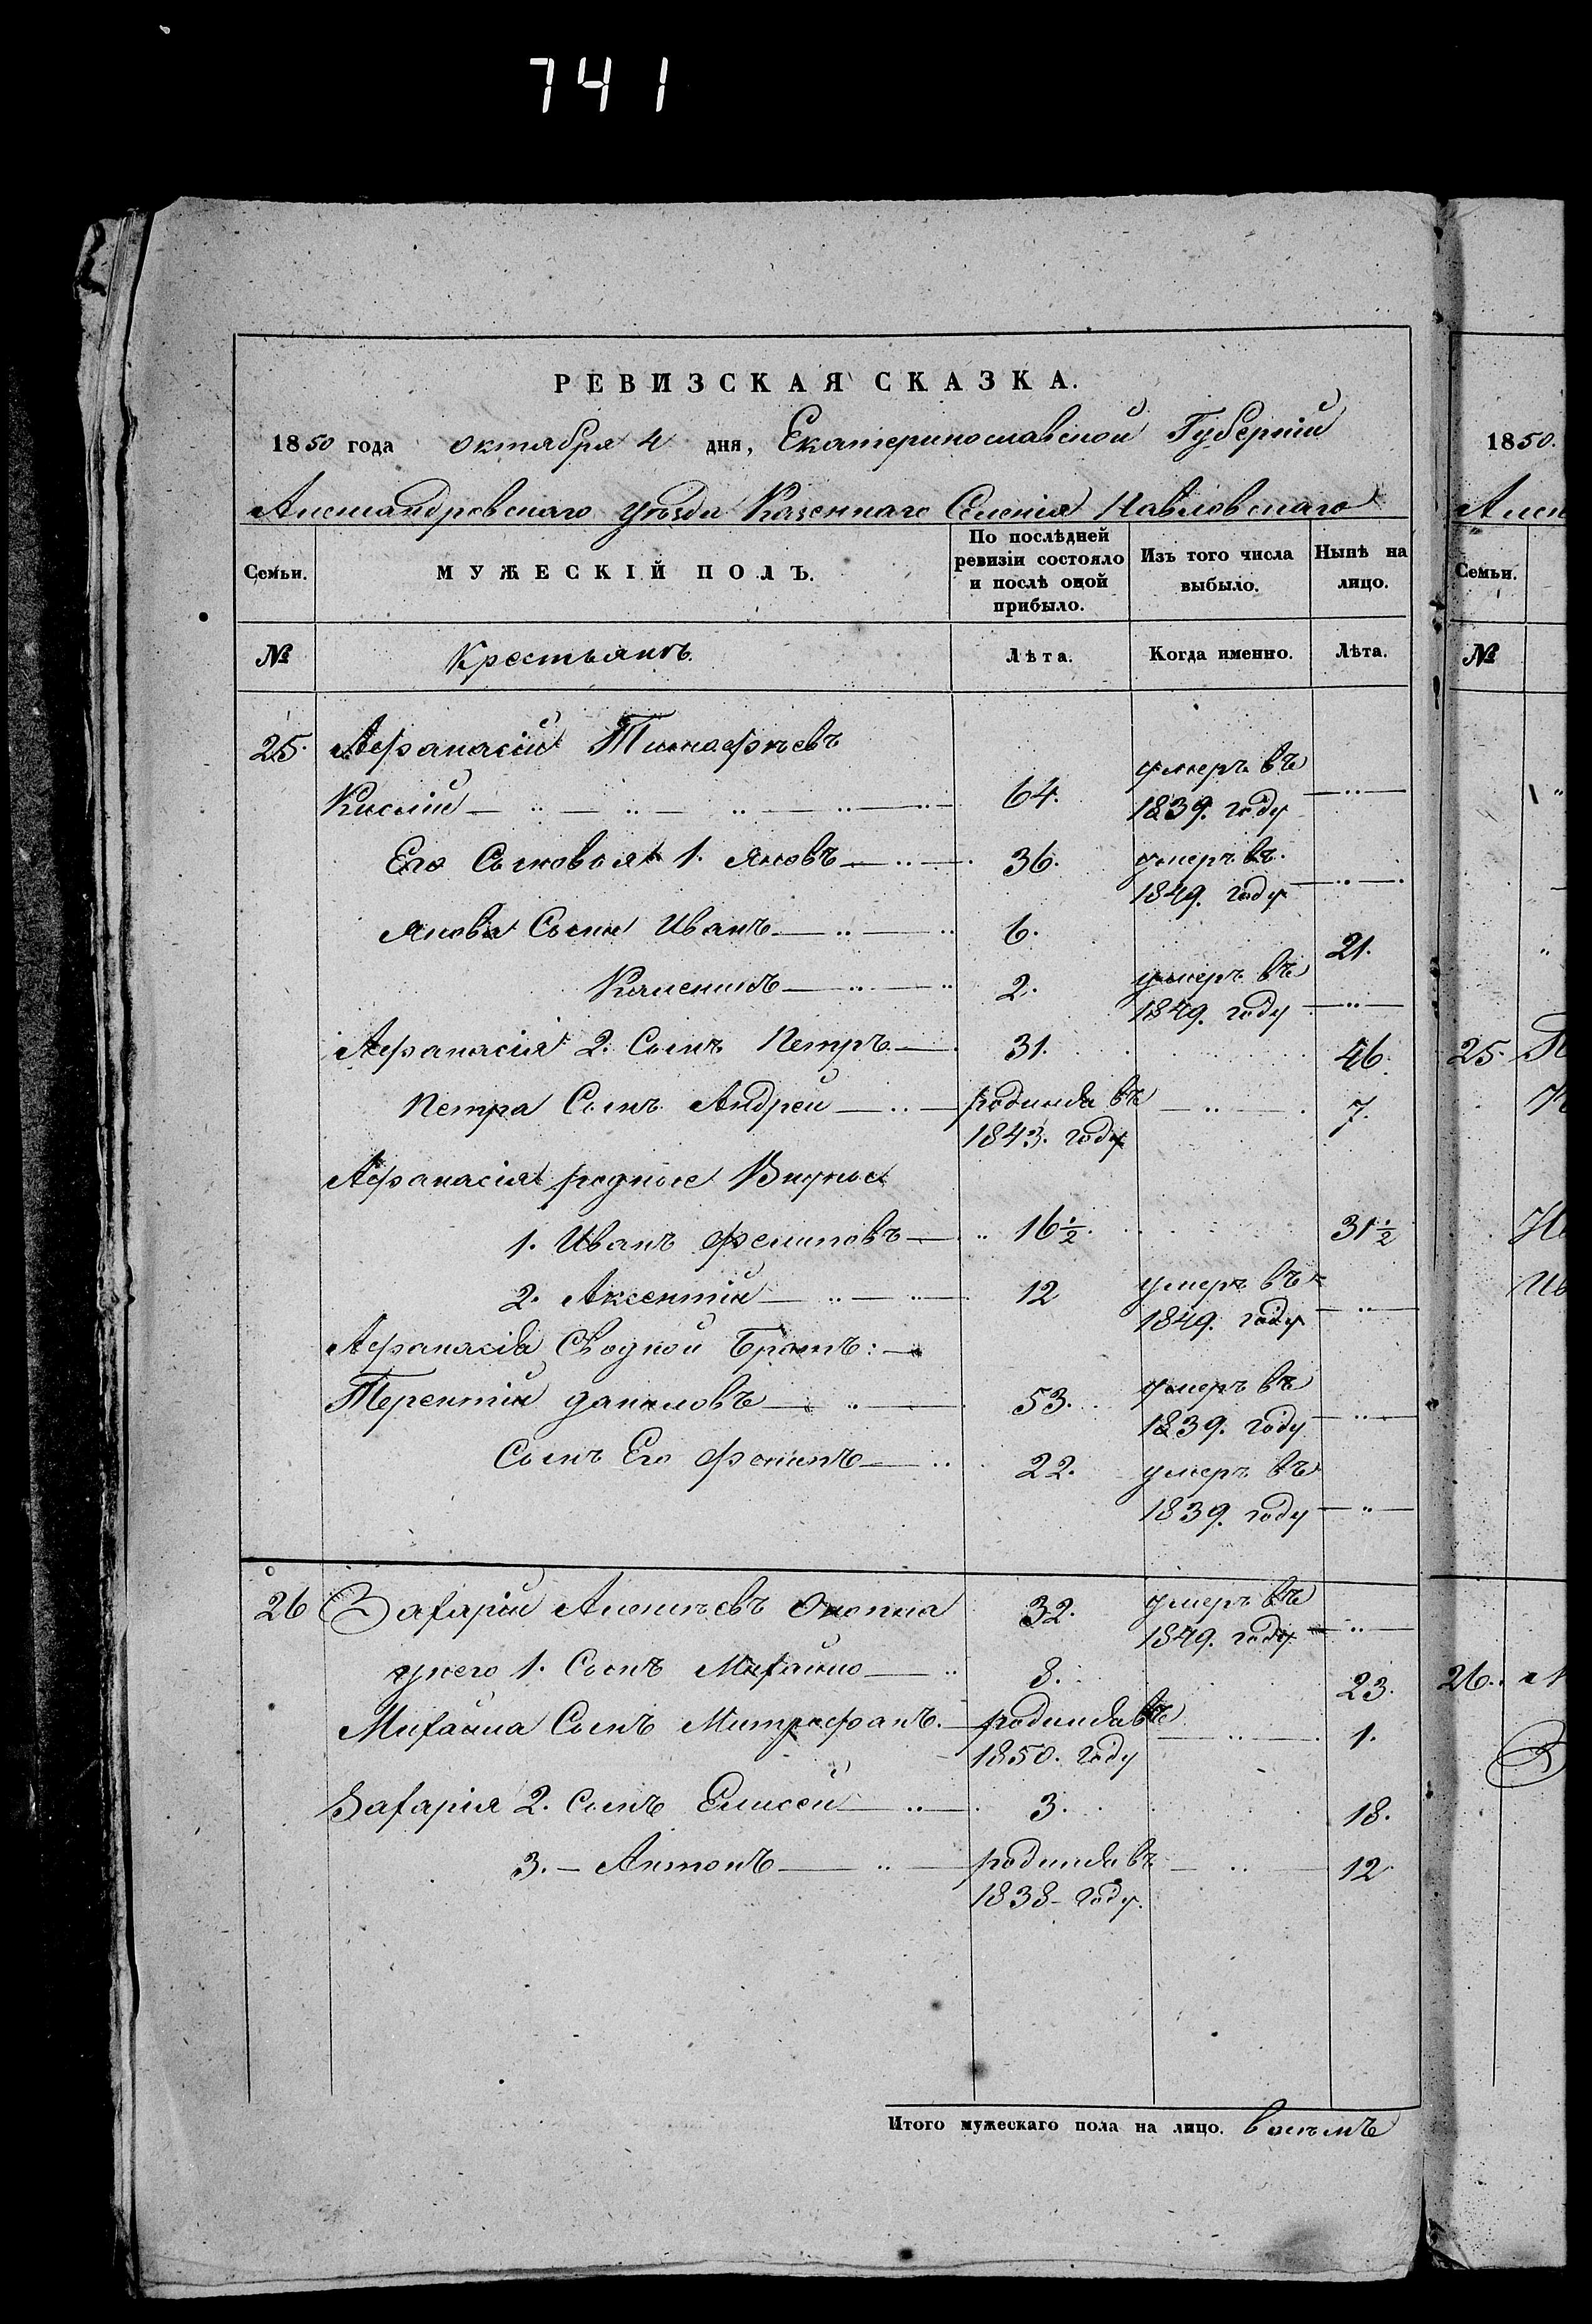 741
РЕВИЗСКАЯ СКАЗКА.
1850 года октября 4 дня, Екатеринославской Губерніи
Александровскаго уѣзда Казеннаго Селенія Павловскаго
Семьи. МУЖЕСКІЙ ПОЛЪ. По послѣдней ревизіи состояло и послѣ оной прибыло. Изъ того числа выбыло. Нынѣ на лицо.
№ Крестьянъ. Лѣта. Когда именно. Лѣта.
25. Афанасій Тимофѣевъ
Кислій 64. умеръ въ 1839. году
Его Сыновья 1. Яковъ 36. умеръ въ 1849. году
Якова Сыны Иванъ 6. 21.
2. умеръ въ 1849. году
Афанасія 2. Сынъ Петръ 31. 46.
Петра Сынъ Андрей родился въ 1843. году 7.
Афанасія родные Внуки
1. Иванъ Филиповъ 16 1/2. 31 1/2
2. Аксентій 12 умеръ въ 1849. году
Афанасія Сводной Братъ:
Терентій Даниловъ 53. умеръ въ 1839. году
Сынъ Его Филипъ 22. умеръ въ 1839. году
26 Захарій 32. умеръ въ 1849. году
у него 1. Сынъ Михайло 8. 23.
Михайла Сынъ Митрофанъ. родился въ 1850. году 1.
Захарія 2. сынъ Елисей 3. 18.
3. – Антонъ родился въ 1838 – году. 12
Итого мужескаго пола на лицо. восемъ
1850.
Семьи.
№
25.
26.